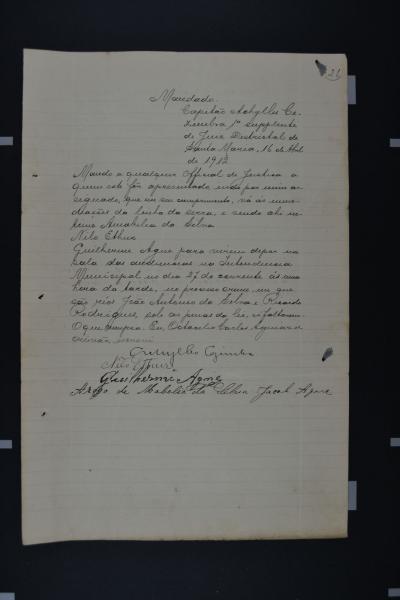 21
Mandado.
Capitão Achylles Ce-
zimbra 1º supplente
de Juiz Districtal de
Santa Maria, 16 de Abril
de 1912
Mando a qualquer Official de Justiça a
quem este for apresentado indo por mim as-
signado, que em seu cumprimento, vá as
da linha da serra, e sendo ahi
Amabilia da Silva
Nilo
Guilherme Agne para virem depor na
sala das audiencias na Intendencia
Municipal no dia 27 do corrente ás uma
hora da tarde, no processo crime em que
são réos João Antonio da Silva e Ricardo
Rodrigues, sob as penas da lei, si faltarem.
O que cumpra. Eu, Octacilio Carlos
escrivão escrevi
Achylles Cezimbra
Guilherme Agne
de da Silva Jacob Agne